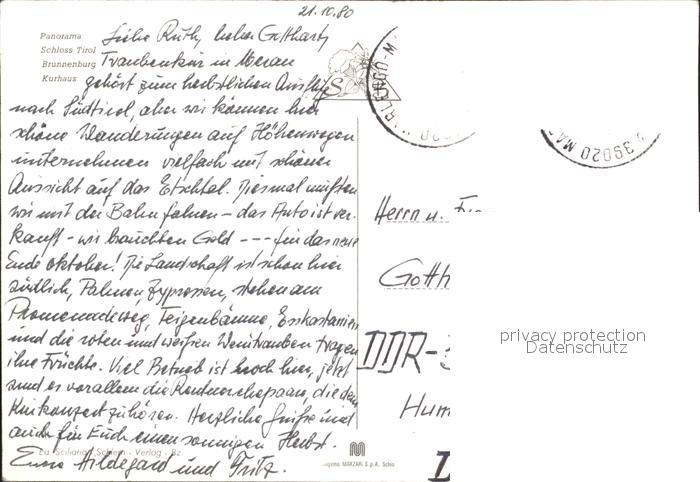 21.10.80
Panorama
Schloss Tirol
Brunnenburg
Kurhaus
Liebe Ruth, lieber Gotthard,
Traubenkur in Meran
gehört zum herbstlichen Ausflug
nach Südtirol, aber wir können hier
schöne Wanderungen auf Höhenwegen
unternehmen vielfach mit schöner
Aussicht auf das Etschtal. Diesmal mußten
wir mit der Bahn fahren – das Auto ist ver-
kauft – wir brauchten Geld --- für das neue
Ende Oktober! Die Landschaft ist schon hier
südlich, Palmen, Zypressen, stehen am
Promenadeweg, Feigenbäume, Esskastanien
und die roten und weißen Weintrauben tragen
ihre Früchte. Viel Betrieb ist noch hier, jetzt
sind es vor allem die Rentnerehepaare, die dem
Kurkonzert zuhören. Herzliche Grüße und
auch für Euch einen sonnigen Herbst.
Eure Hildegard und Fritz.
Schlern - Verlag - Bz.
MARZARI S.p.A. Schio
39020 MA
Herrn u.
Gotth
DDR-
Hum
privacy protection
Datenschutz